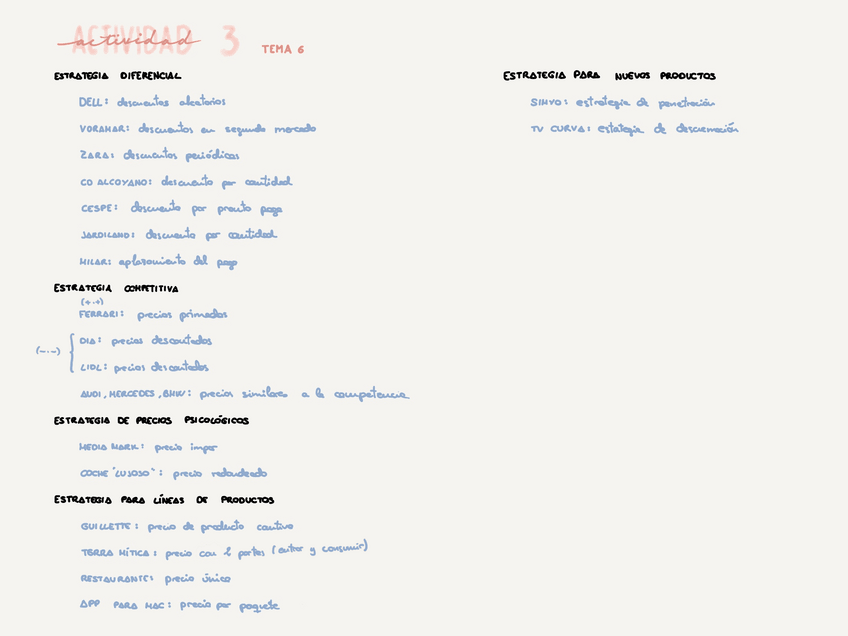 ACTIVIDAD 3
actividad
TEMA 6
ESTRATEGIA DIFERENCIAL
DELL: descuentos aleatorios
VORAMAR: descuentos en segundo mercado
ZARA: descuentos periódicos
CD ALCOYANO: descuento por cantidad
CESPE: descuento por pronto pago
JARDILAND: descuento por cantidad
MILAR: aplazamiento del pago
ESTRATEGIA COMPETITIVA
(+·+)
FERRARI: precios primados
DIA: precios descontados
(-·-)
LIDL: precios descontados
AUDI, MERCEDES, BMW: precios similares a la competencia
ESTRATEGIA DE PRECIOS PSICOLÓGICOS
MEDIA MARK: precio impar
COCHE "LUJOSO": precio redondeado
ESTRATEGIA PARA LÍNEAS DE PRODUCTOS
GUILLETTE: precio de producto cautivo
TERRA MÍTICA: precio con 2 partes (entrar y consumir)
RESTAURANTE: precio único
APP PARA MAC: precio por paquete
ESTRATEGIA PARA NUEVOS PRODUCTOS
SIMYO: estrategia de penetración
TV CURVA: estategia de descremación